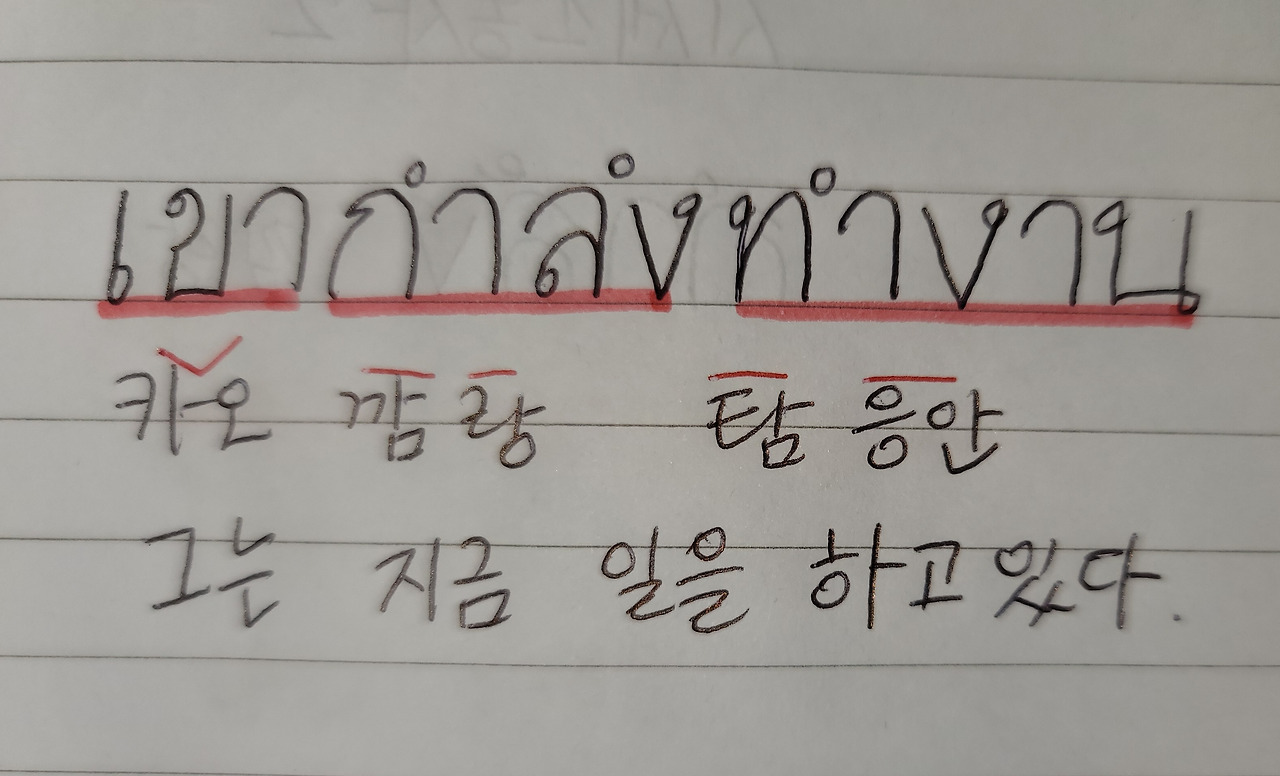 เขากำลังทำงาน
카오 깜랑 탐 응안
그는 지금 일을 하고있다.